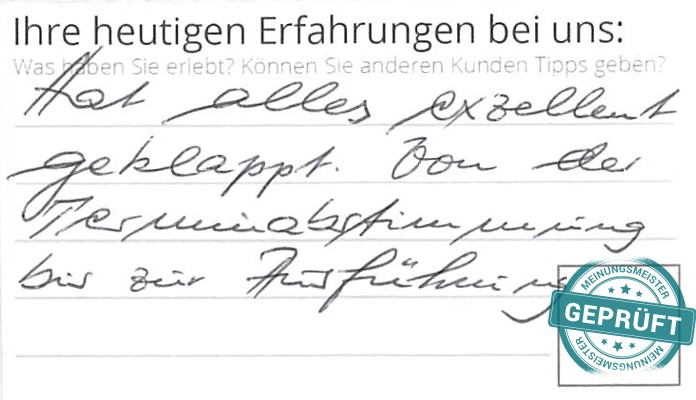 Ihre heutigen Erfahrungen bei uns:
Was haben Sie erlebt? Können Sie anderen Kunden Tipps geben?
Hat alles exzellent
geklappt. Von der
Terminabstimmung
bis zur Ausführung
MEINUNGSMEISTER
GEPRÜFT
MEINUNGSMEISTER